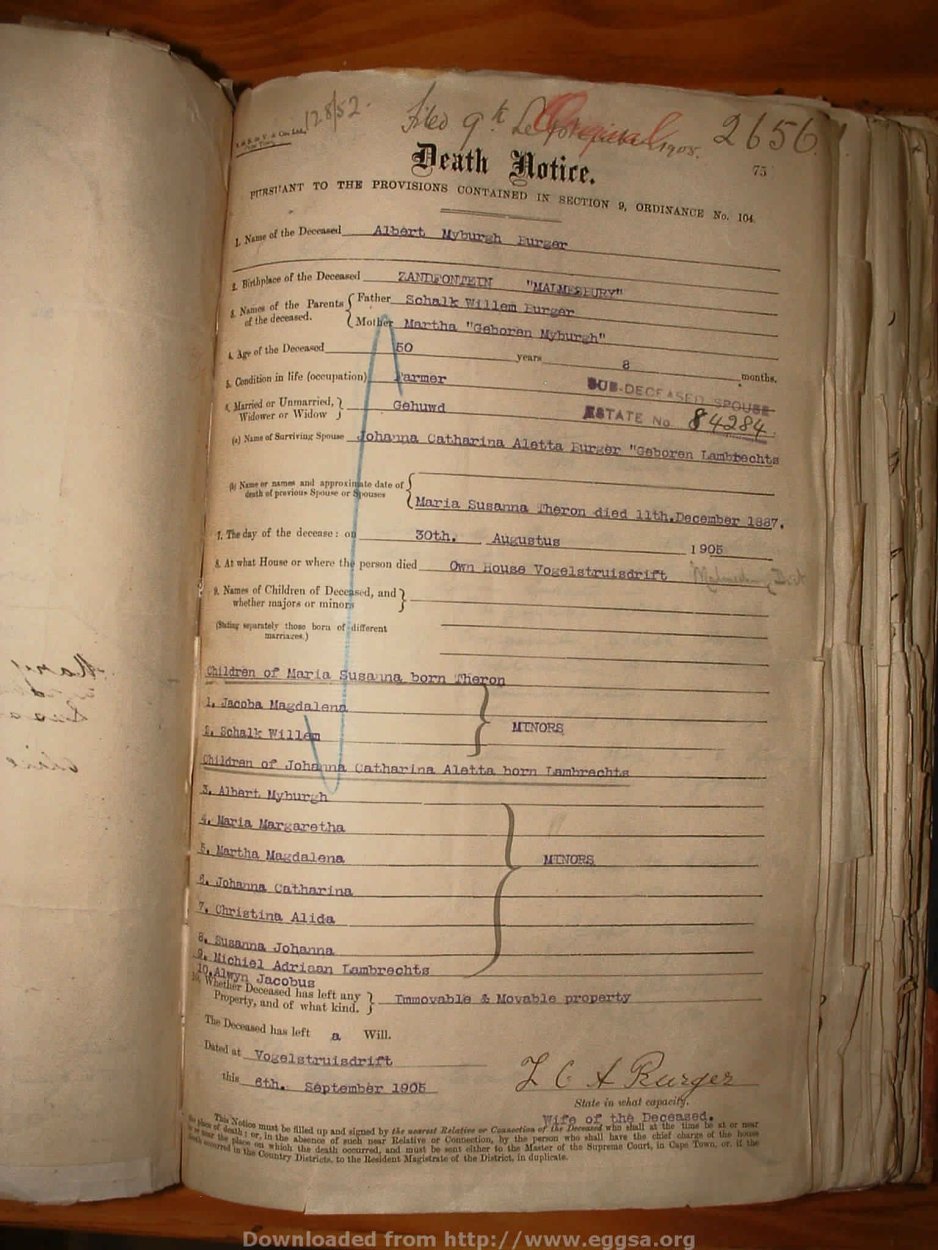 128/52.
Filed 9th 1905. Original 2656
75
Death Notice.
PURSUANT TO THE PROVISIONS CONTAINED IN SECTION 9, ORDINANCE No. 104.
1. Name of the Deceased Albert Myburgh Burger
2. Birthplace of the Deceased ZANDFONTEIN "MALMESBURY"
3. Names of the Parents of the deceased. { Father Schalk Willem Burger
Mother Martha "Geboren Myburgh"
4. Age of the Deceased 50 years 8 months.
5. Condition in life (occupation) Farmer
SUB-DECEASED SPOUSE
6. Married or Unmarried, Widower or Widow } Gehuwd
ESTATE No. 84284
(a) Name of Surviving Spouse Johanna Catharina Aletta Burger "Geboren Lambrechts
(b) Name or names and approximate date of death of previous Spouse or Spouses { Maria Susanna Theron died 11th. December 1887.
7. The day of the decease: on 30th. Augustus 1905
8. At what House or where the person died Own House Vogelstruisdrift
9. Names of Children of Deceased, and whether majors or minors }
(Stating separately those born of different marriages.)
Children of Maria Susanna born Theron
1. Jacoba Magdalena
2. Schalk Willem
MINORS
Children of Johanna Catharina Aletta born Lambrechts
3. Albert Myburgh
4. Maria Margaretha
5. Martha Magdalena
MINORS
6. Johanna Catharina
7. Christina Alida
8. Susanna Johanna
9. Michiel Adriaan Lambrechts
10. Alwyn Jacobus
10. Whether Deceased has left any Property, and of what kind. } Immovable & Movable property
The Deceased has left a Will.
Dated at Vogelstruisdrift
this 6th. September 1905
Burger
State in what capacity.
Wife of the Deceased.
This Notice must be filled up and signed by the nearest Relative or Connection of the Deceased who shall at the time be at or near
the place of death; or, in the absence of such near Relative or Connection, by the person who shall have the chief charge of the house
or the place on which the death occurred, and must be sent either to the Master of the Supreme Court, in Cape Town, or, if the
death occurred in the Country Districts, to the Resident Magistrate of the District, in duplicate.
Downloaded from http://www.eggsa.org